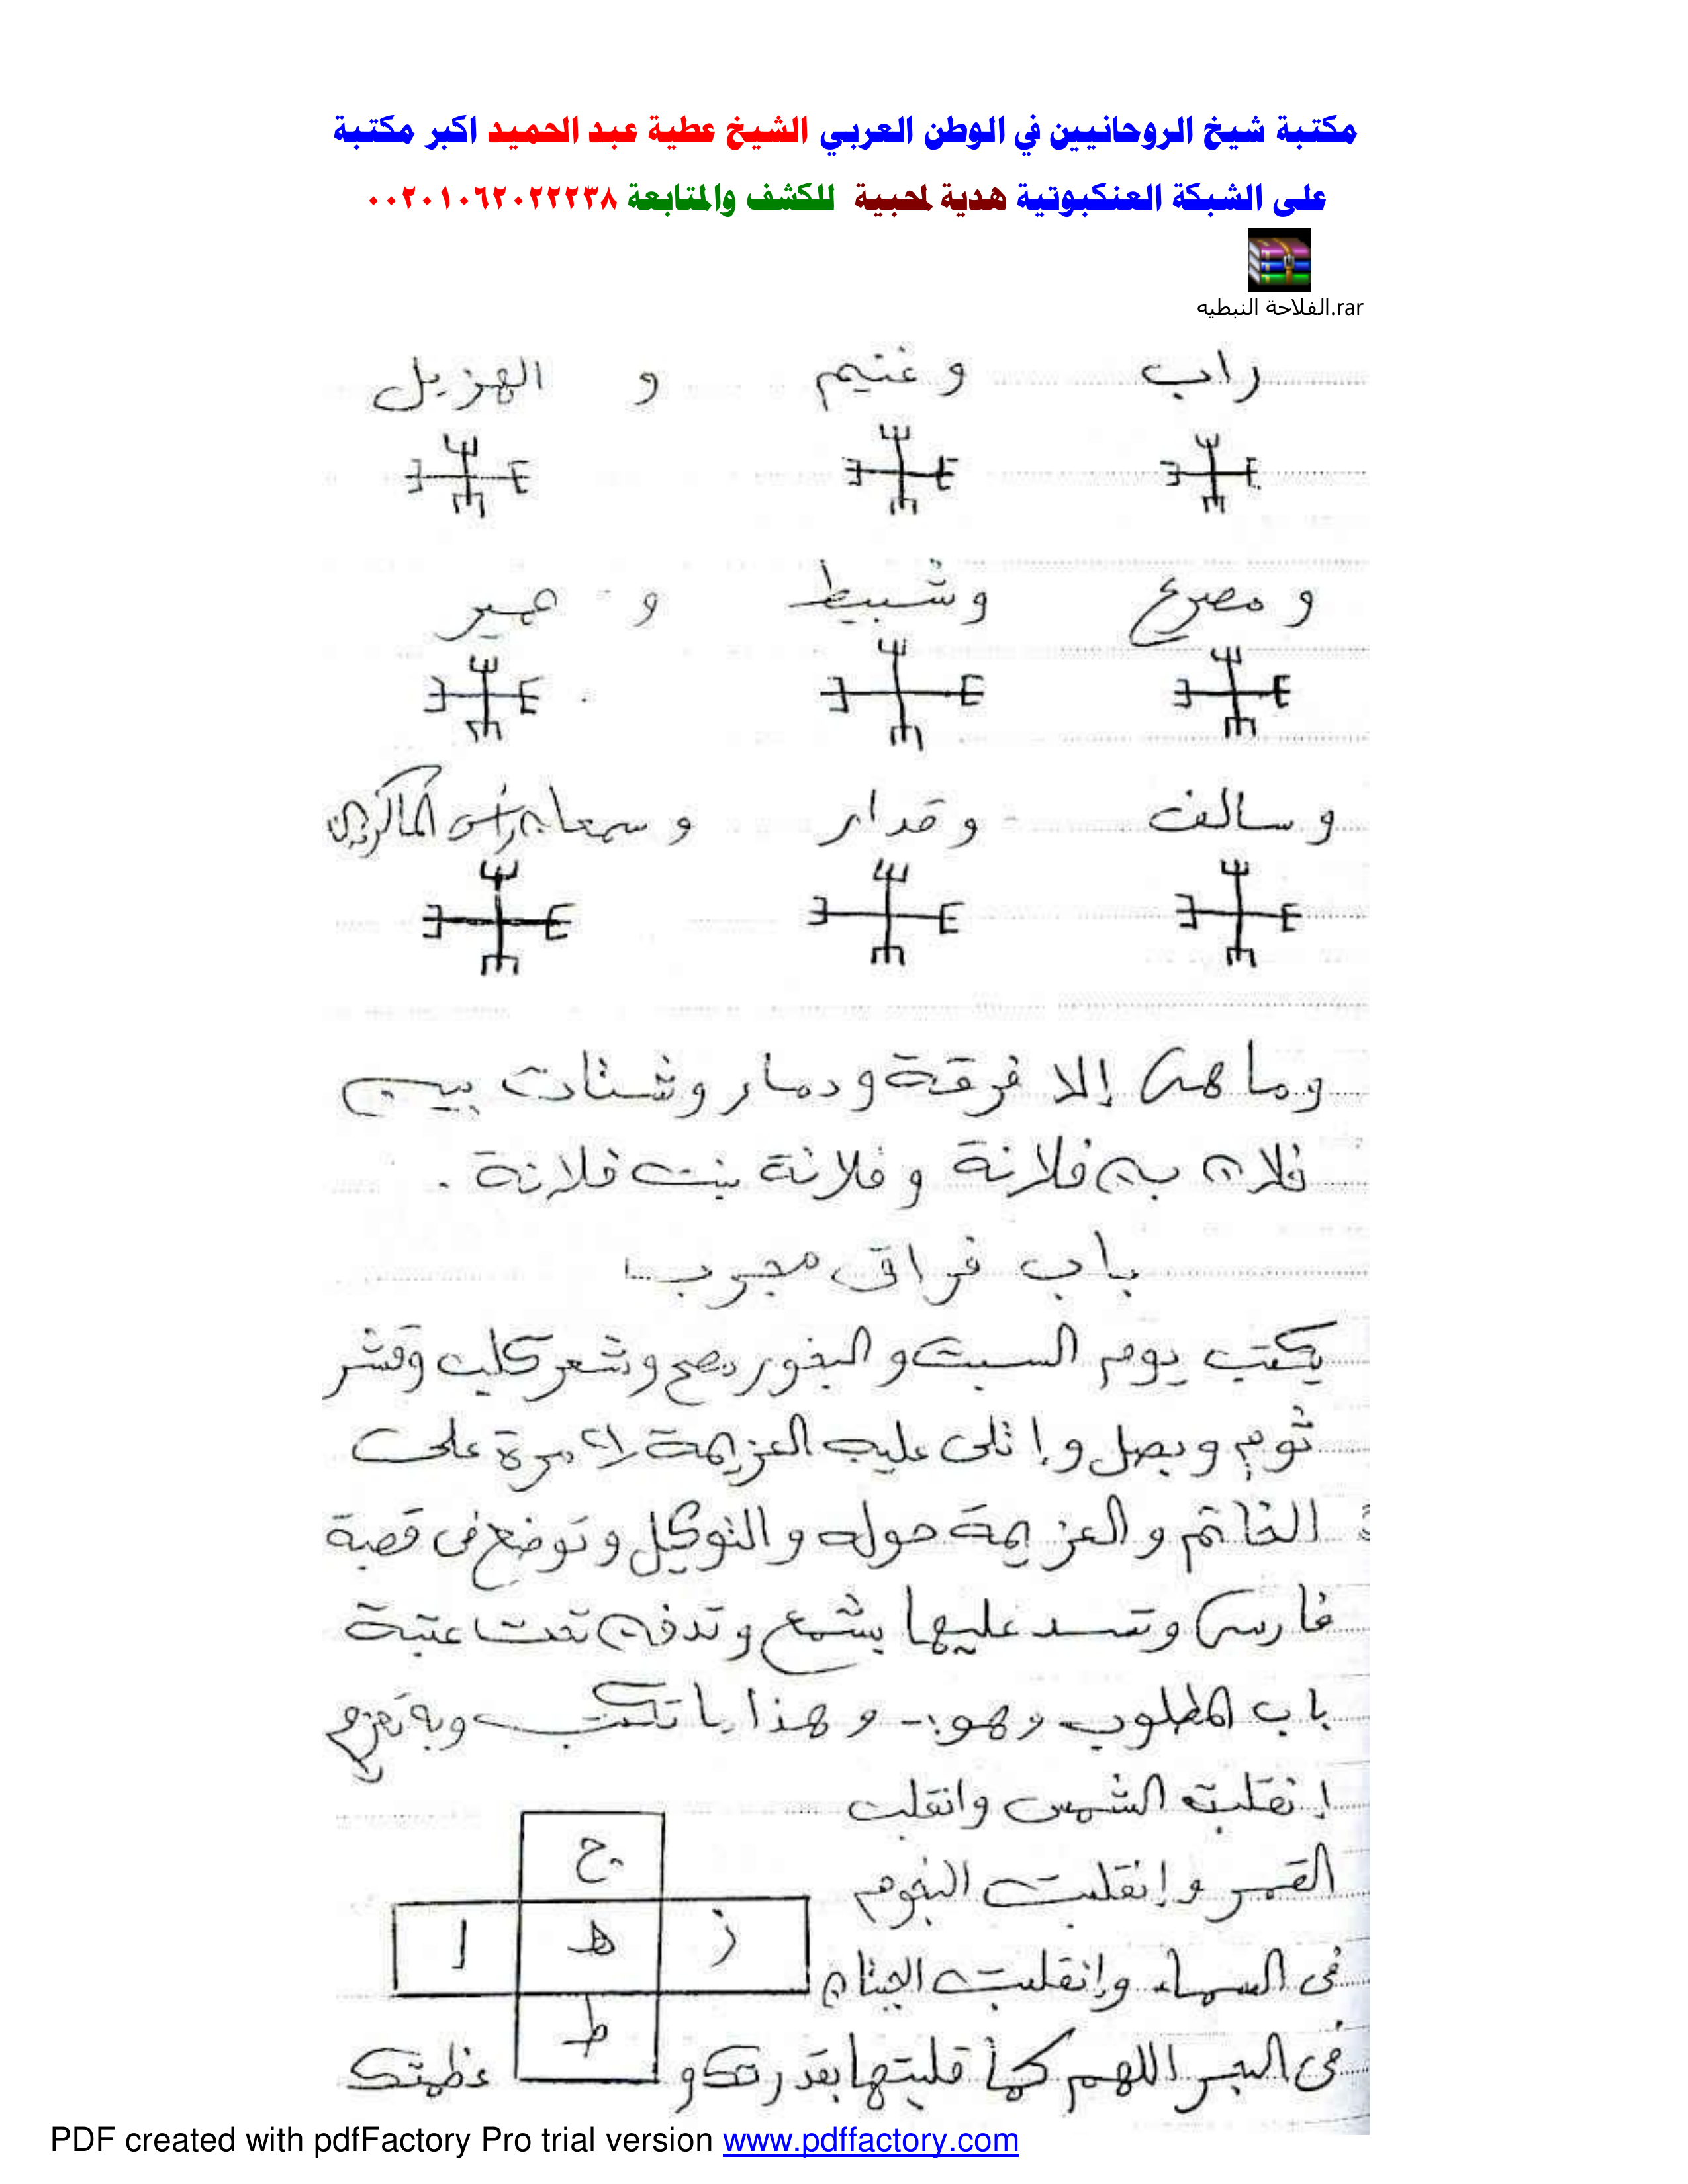 مكتبة شيخ الروحانيين في الوطن العربي الشيخ عطية عبد الحميد اكبر مكتبة
على الشبكة العنكبوتية هدية لمحبية للكشف والمتابعة ٠٠٢٠١٠٦٢٠٢٢٢٣٨
الفلاحة النبطيه.rar
راب وغنيم و الهزيل
و مصرع وشبيط و عمير
و سالف و قدار و سمعان راس الماكرين
وما هى إلا فرقة ودمار وشتات بين
فلان بن فلانة وفلانة بنت فلانة .
باب فراق مجرب
يكتب يوم السبت و البخور وشعر كلب وقشر
ثوم وبصل وإتلى عليه العزيمة ٧ مرة على
الخاتم والعزيمة حوله والتوكيل وتوضع فى قصبة
فارسى وتسد عليها بشمع وتدفن تحت عتبة
باب المطلوب وهو :- وهذا ما تكتب وبه تعزم
إنقلبت الشمس وانقلب
القمر وإنقلبت النجوم
ج
فى السماء وإنقلبت الحيتان
ز ه ا
فى البحر اللهم كما قلبتها بقدرتك و عظمتك
ط
PDF created with pdfFactory Pro trial version www.pdffactory.com